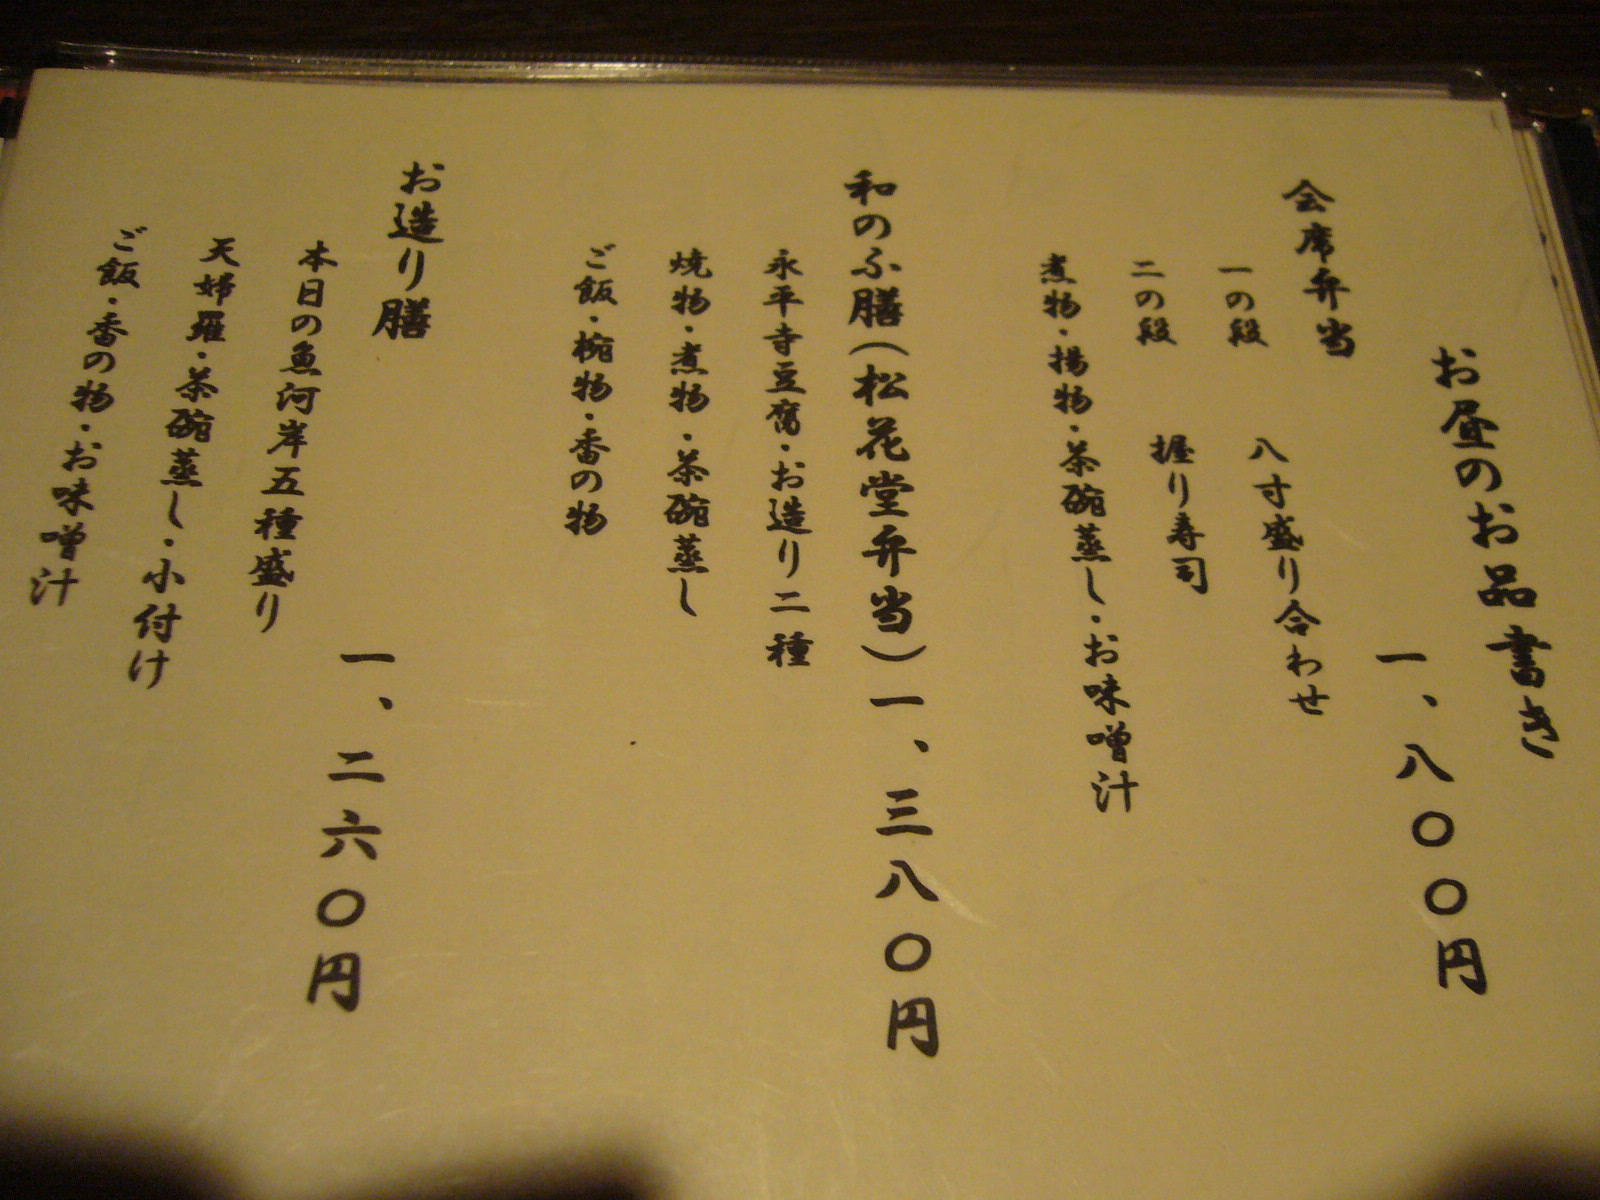 お昼のお品書き
会席弁当　一、八〇〇円
一の段　八寸盛り合わせ
二の段　握り寿司
煮物・揚物・茶碗蒸し・お味噌汁
和のふ膳(松花堂弁当)一、三八〇円
永平寺豆腐・お造り二種
焼物・煮物・茶碗蒸し
ご飯・椀物・香の物
お造り膳　一、二六〇円
本日の魚河岸五種盛り
天婦羅・茶碗蒸し・小付け
ご飯・香の物・お味噌汁